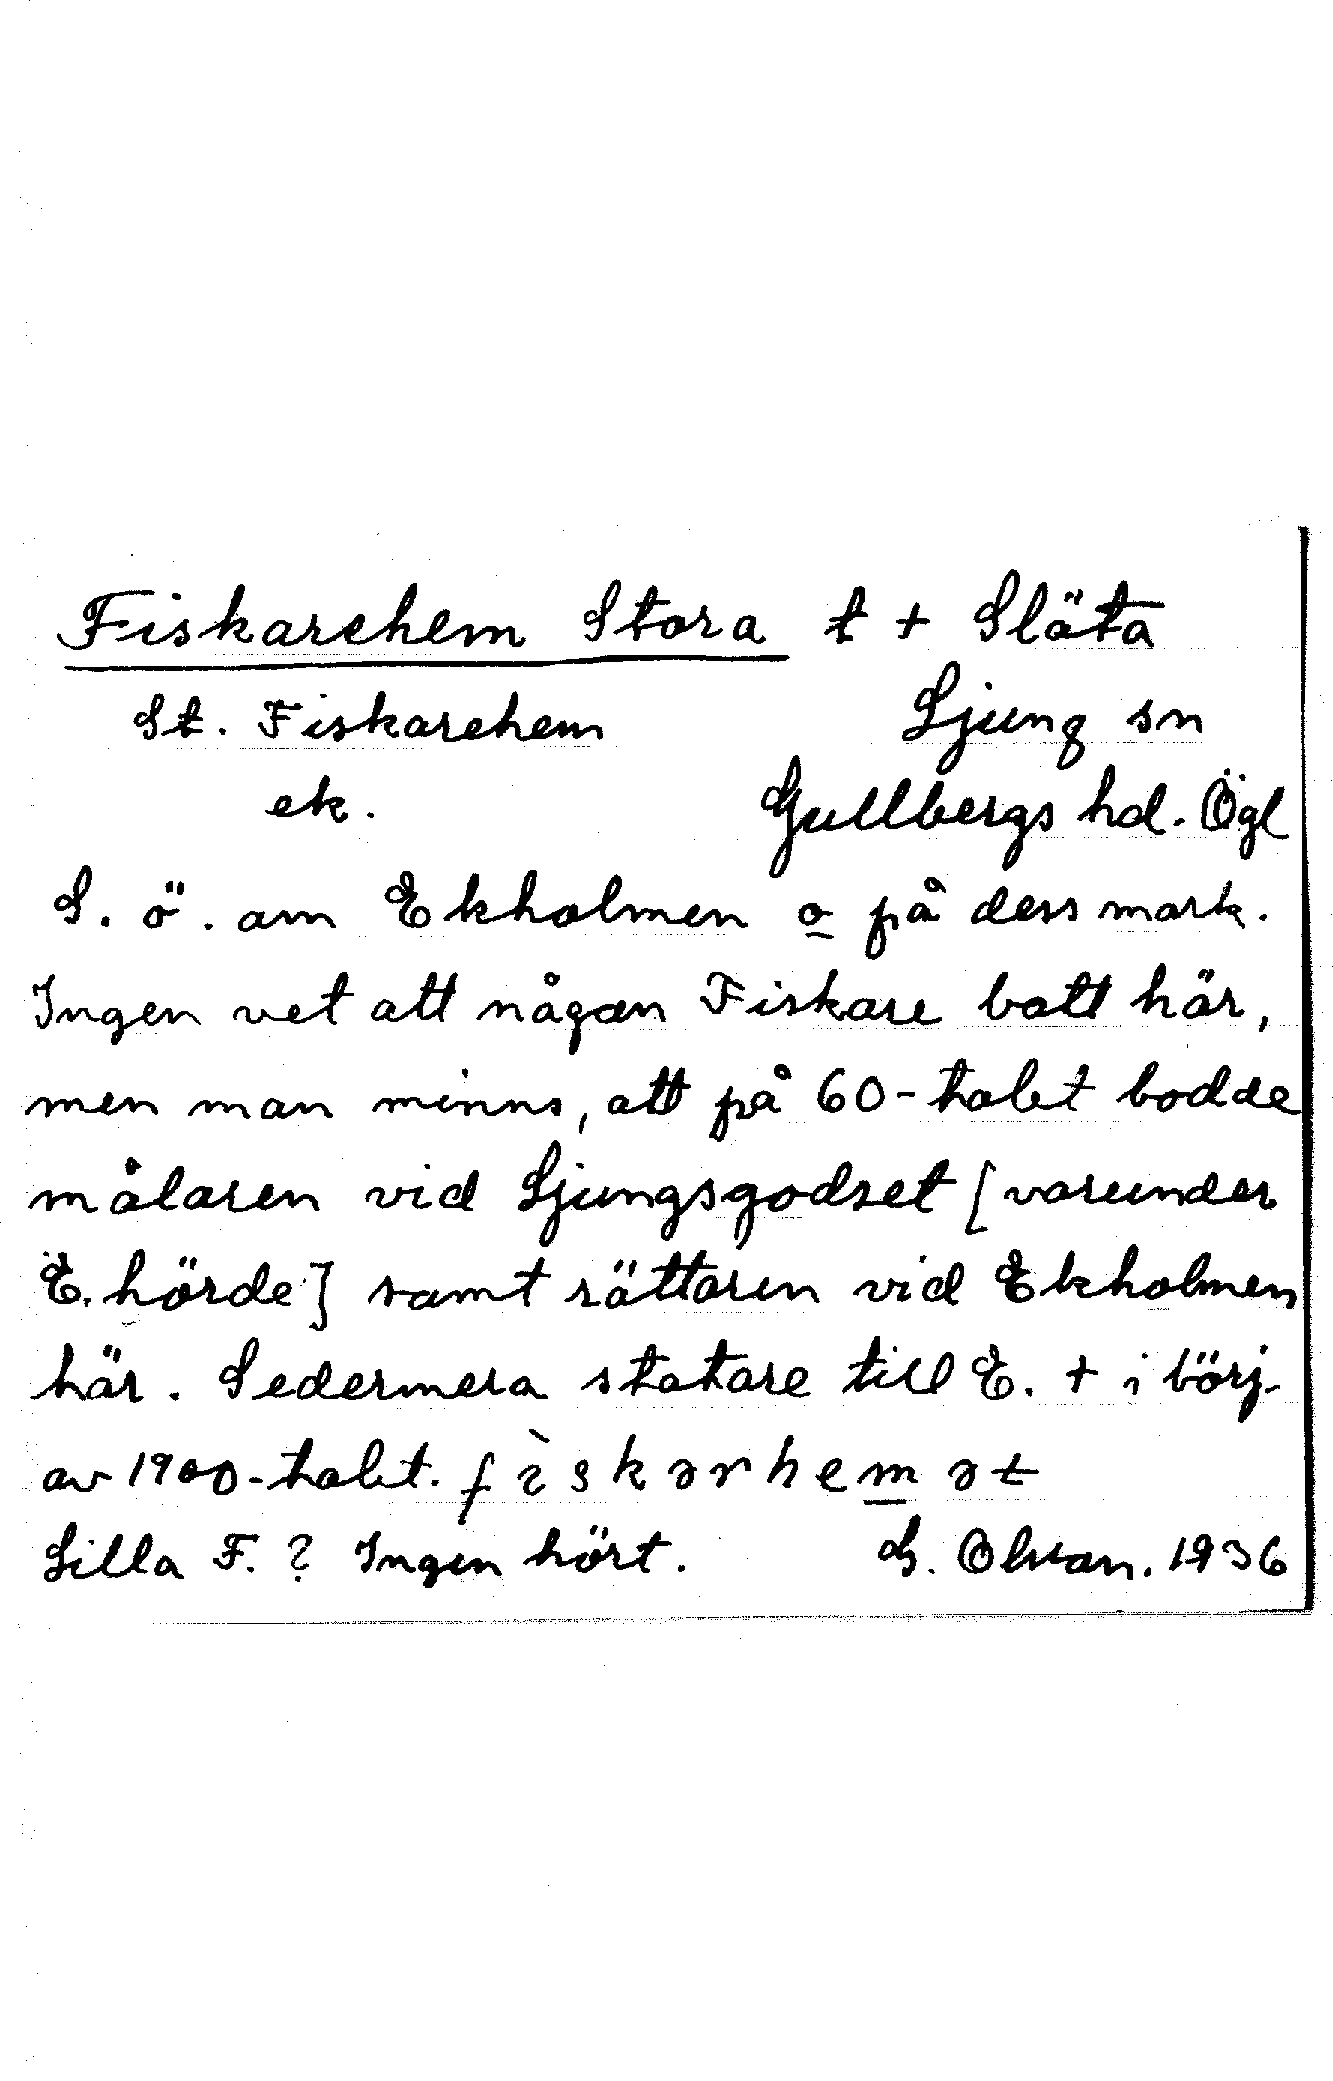 Fiskarehem Stora t + Släta
St. Fiskarehem Ljung sn
ek. Gullbergs hd. Ögl
S. ö. om Ekholmen o på dess mark.
Ingen vet att någon Fiskare bott här,
men man minns, att på 60-talet bodde
målaren vid Ljungsgodset [varunder
E. hörde] samt rättaren vid Ekholmen
här. Sedermera statare till E. + i börj.
av 1900-talet. fìskərhemət
Lilla F. ? Ingen hört. G. Olsson. 1936